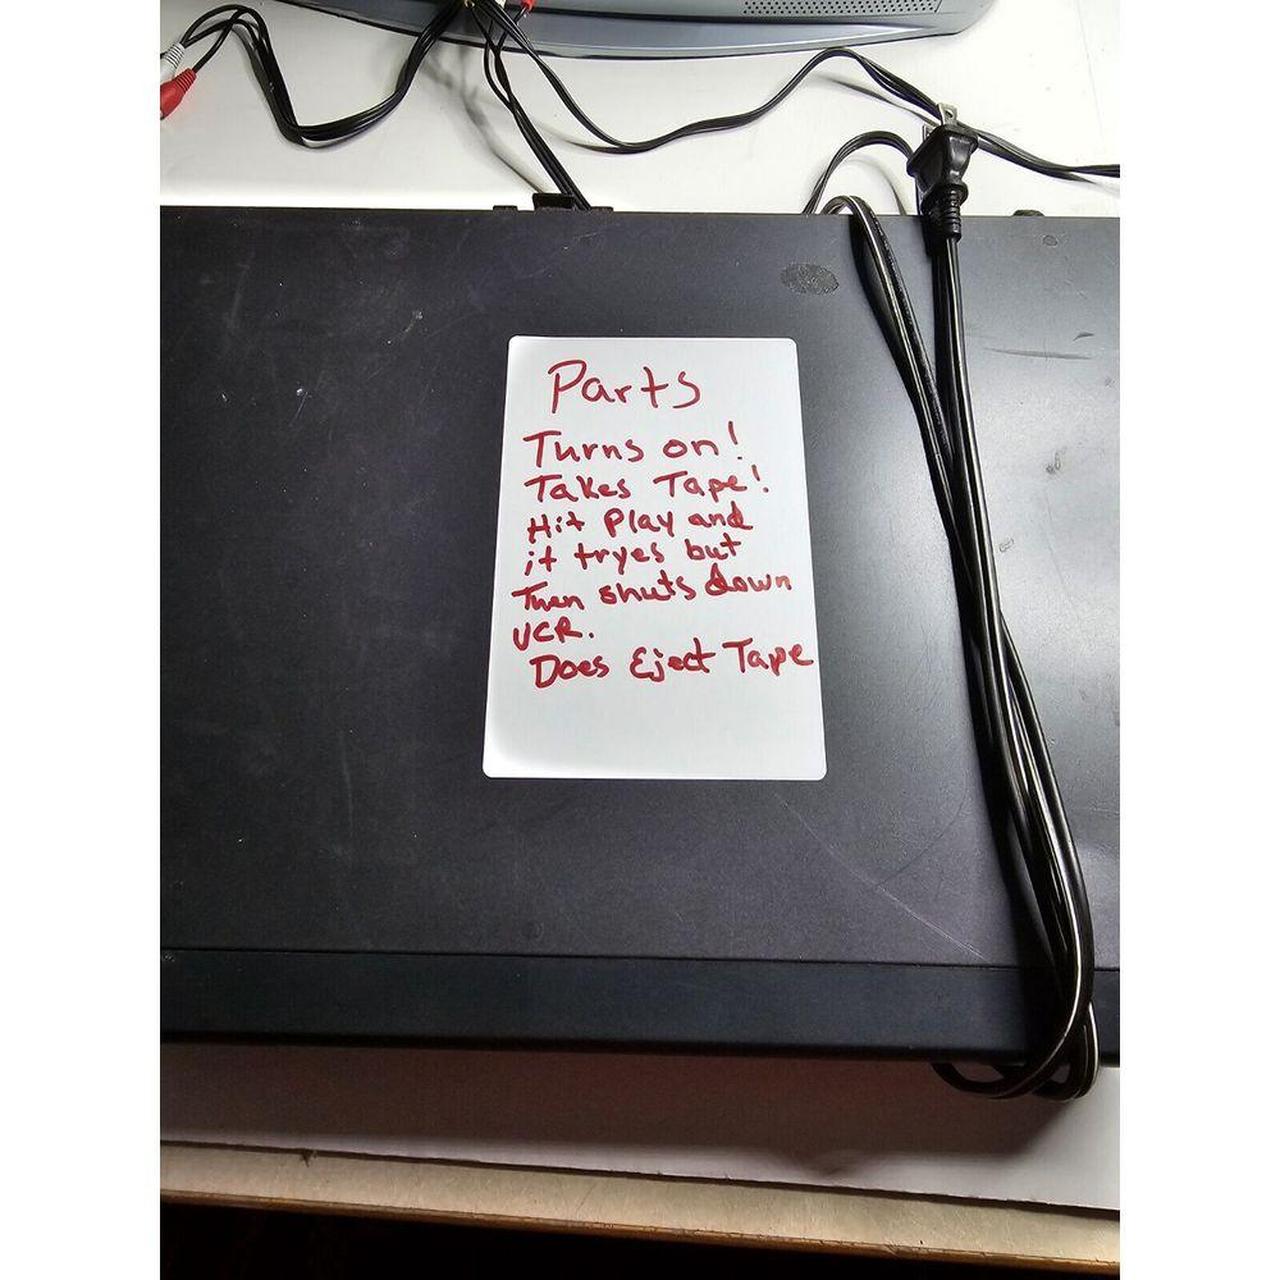 Parts
Turns on!
Takes Tape!
Hit Play and
it tryes but
Then shuts down
VCR.
Does Eject Tape